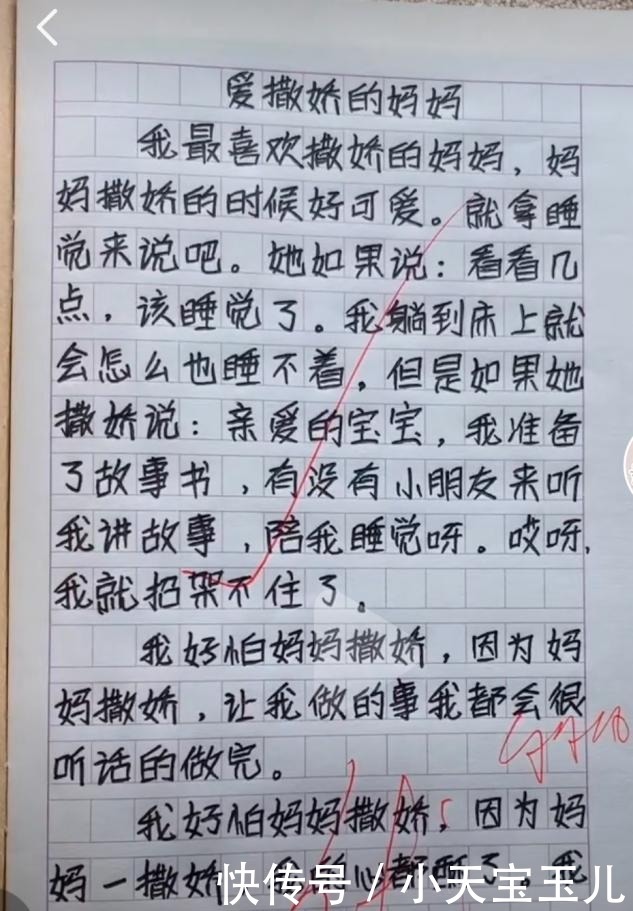 爱撒娇的妈妈
我最喜欢撒娇的妈妈，妈
妈撒娇的时候好可爱。就拿睡
觉来说吧。她如果说：看看几
点，该睡觉了。我躺到床上就
会怎么也睡不着，但是如果她
撒娇说：亲爱的宝宝，我准备
了故事书，有没有小朋友来听
我讲故事，陪我睡觉呀。哎呀，
我就招架不住了。
我好怕妈妈撒娇，因为妈
妈撒娇，让我做的事我都会很
听话的做完。
我好怕妈妈撒娇，因为妈
妈一撒娇 我 心都 了。我
快传号/小天宝玉儿